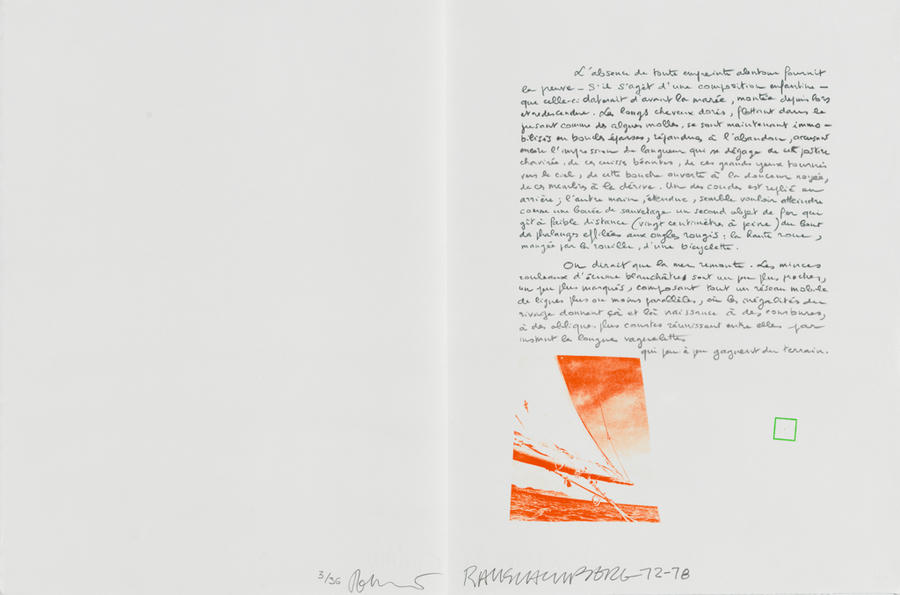 L'absence de toute empreinte alentour fournit
la preuve – S'il s'agit d'une composition enfantine –
que celle-ci daterait d'avant la marée, montée depuis lors
et redescendue. Les longs cheveux dorés, flottant dans le
jusant comme des algues molles, se sont maintenant immo-
bilisés en boucles éparses, répandues à l'abandon, accusant
encore l'impression de langueur qui se dégage de cette posture
chavirée, de ces cuisses béantes, de ces grands yeux tournés
vers le ciel, de cette bouche ouverte à la douceur noyée,
de ces membres à la dérive. Un des coudes est replié en
arrière ; l'autre main, étendue, semble vouloir atteindre
comme une bouée de sauvetage un second objet de fer qui
gît à faible distance (vingt centimètres à peine) du bout
des phalanges effilées aux ongles rougis : la haute roue,
mangée par la rouille, d'une bicyclette.
On dirait que la mer remonte. Les minces
rouleaux d'écume blanchâtres sont un peu plus proches,
un peu plus marqués, composant tout un réseau mobile
de lignes plus ou moins parallèles, où les inégalités du
rivage donnent çà et là naissance à des courbures,
à des obliques plus courtes réunissant entre elles par
instant les longues vaguelettes
qui peu à peu gagnent du terrain.
3/36 RAUSCHENBERG 72-78